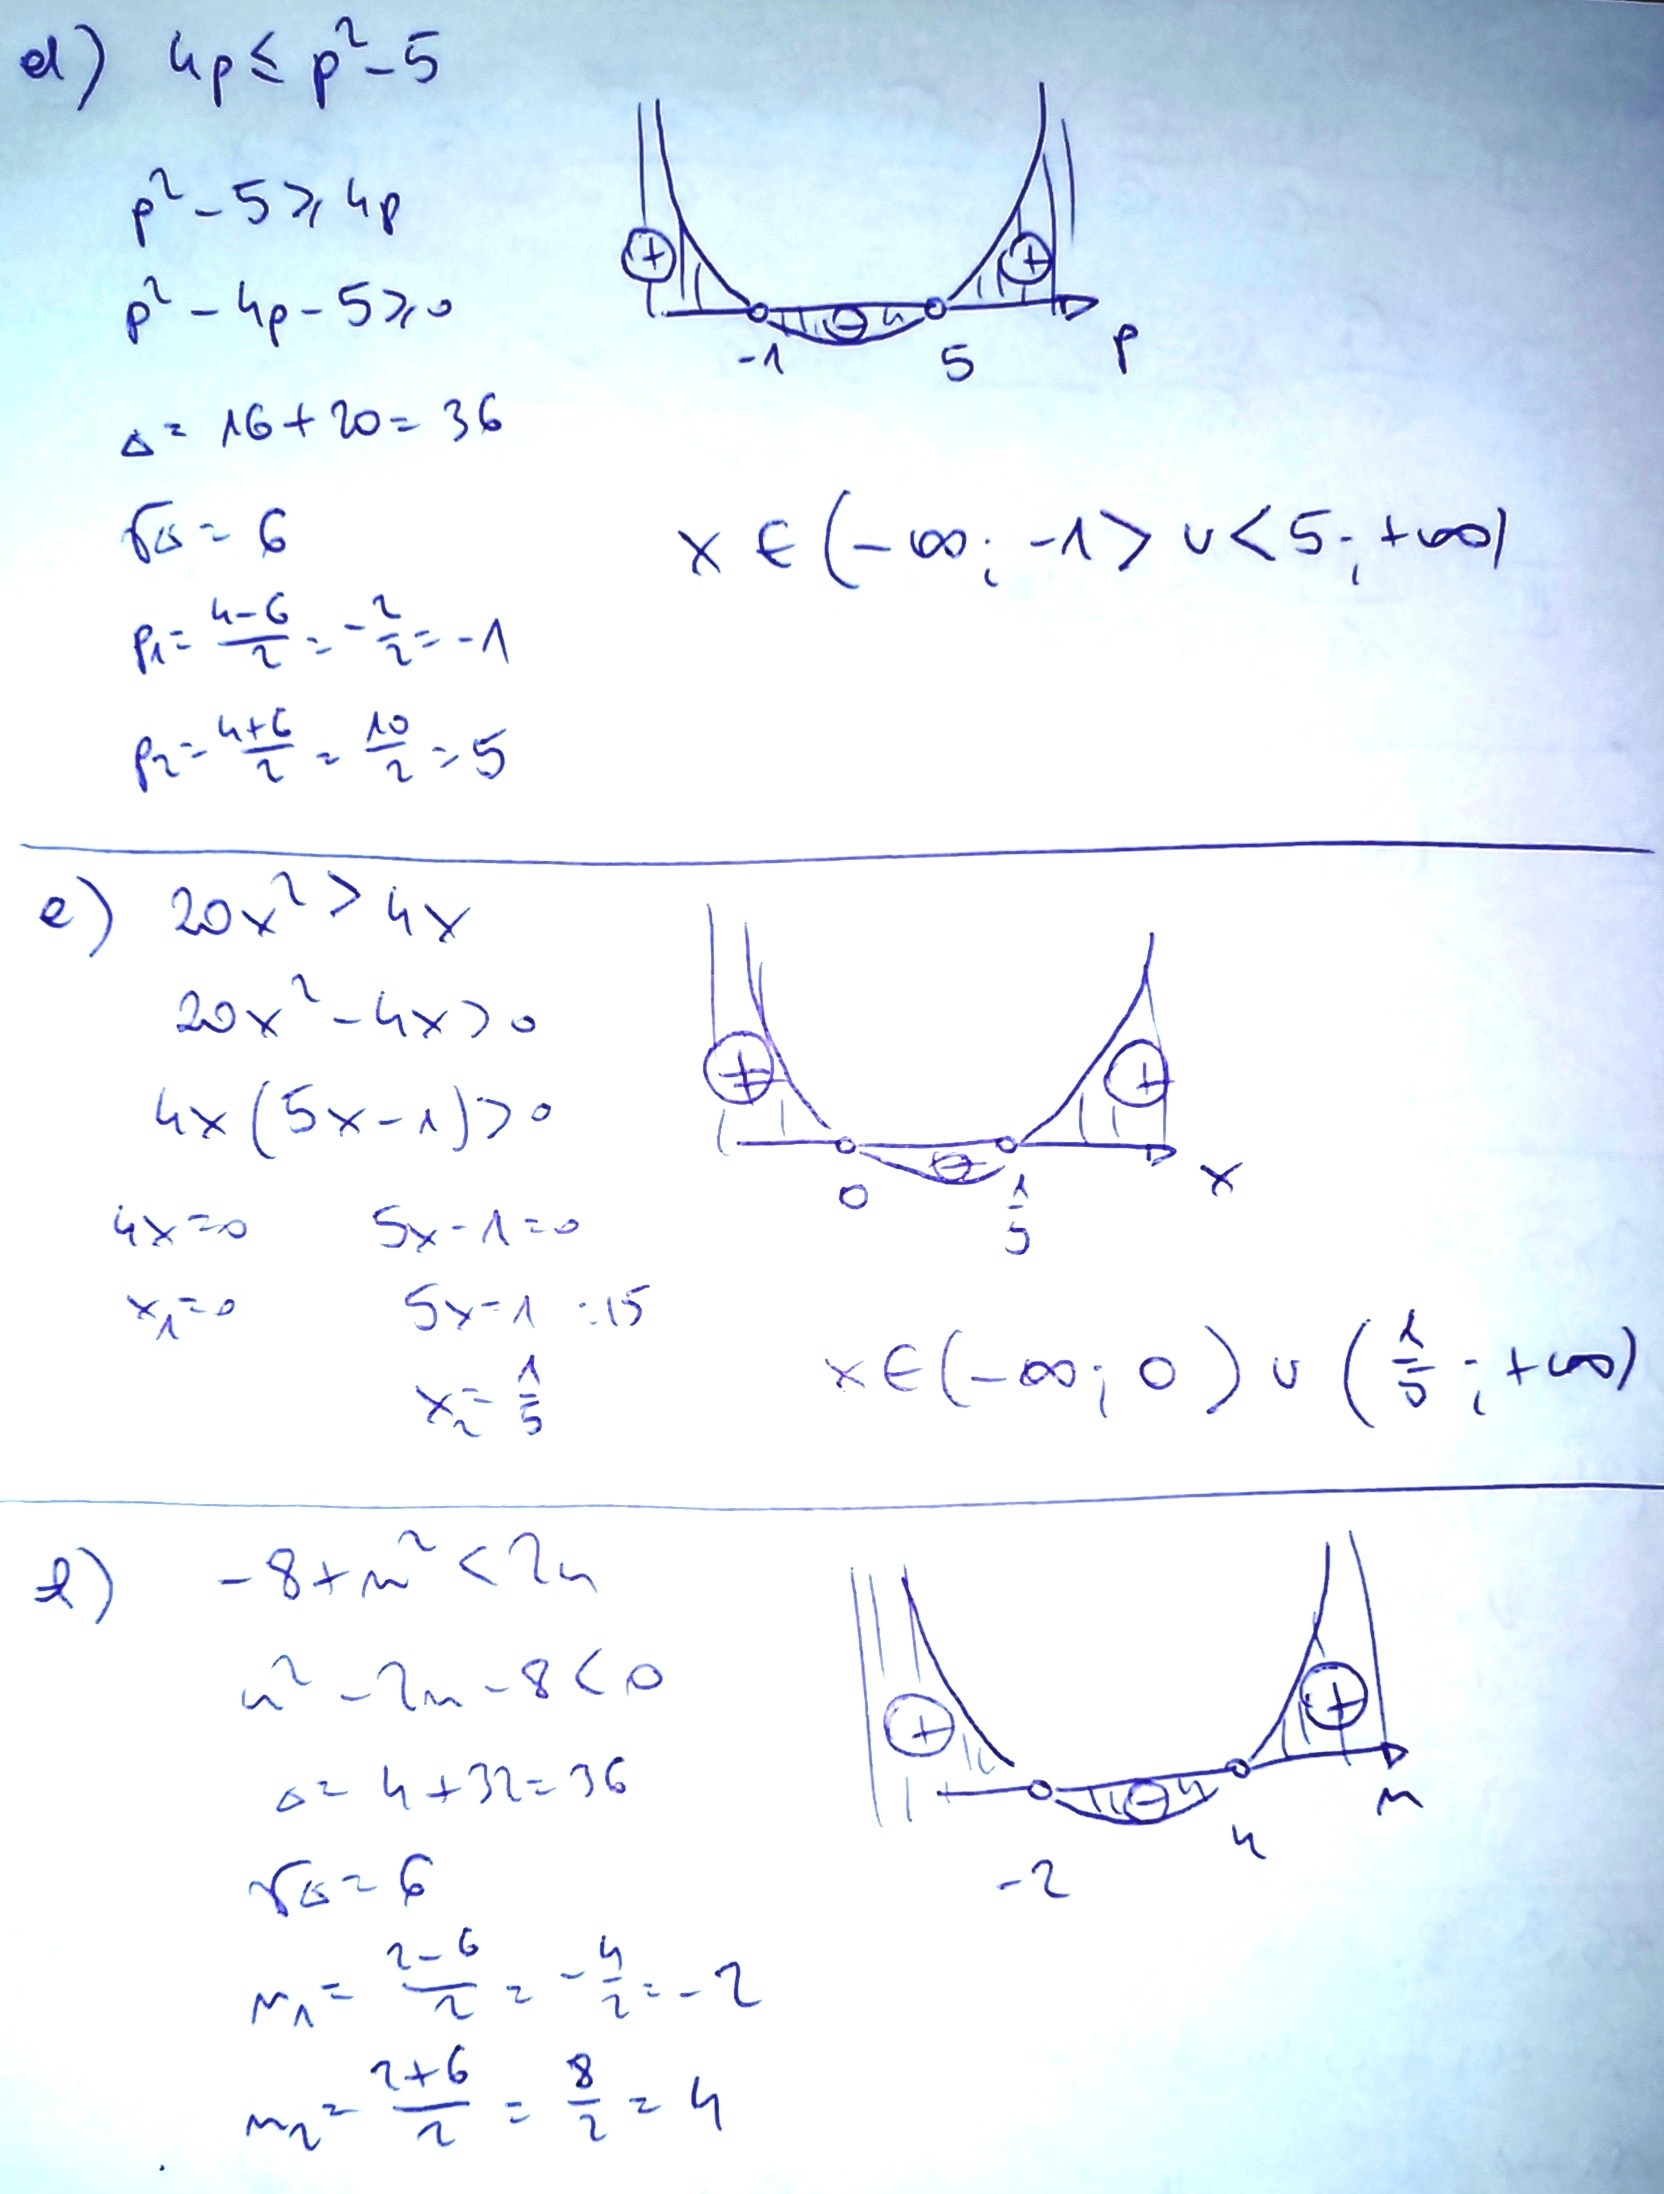 d) 4p ≤ p² - 5
p² - 5 ≥ 4p
p² - 4p - 5 ≥ 0
Δ = 16 + 20 = 36
√Δ = 6
p₁ = (4-6)/2 = -2/2 = -1
p₂ = (4+6)/2 = 10/2 = 5
+ - +
-1 5 p
x ∈ (-∞; -1> ∪ <5; +∞)
e) 20x² > 4x
20x² - 4x > 0
4x(5x - 1) > 0
4x = 0 5x - 1 = 0
x₁ = 0 5x = 1 :15
x₂ = 1/5
+ - +
0 1/5 x
x ∈ (-∞; 0) ∪ (1/5; +∞)
f) -8 + n² < 2n
n² - 2n - 8 < 0
Δ = 4 + 32 = 36
√Δ = 6
n₁ = (2-6)/2 = -4/2 = -2
n₂ = (2+6)/2 = 8/2 = 4
+ - +
-2 4 n